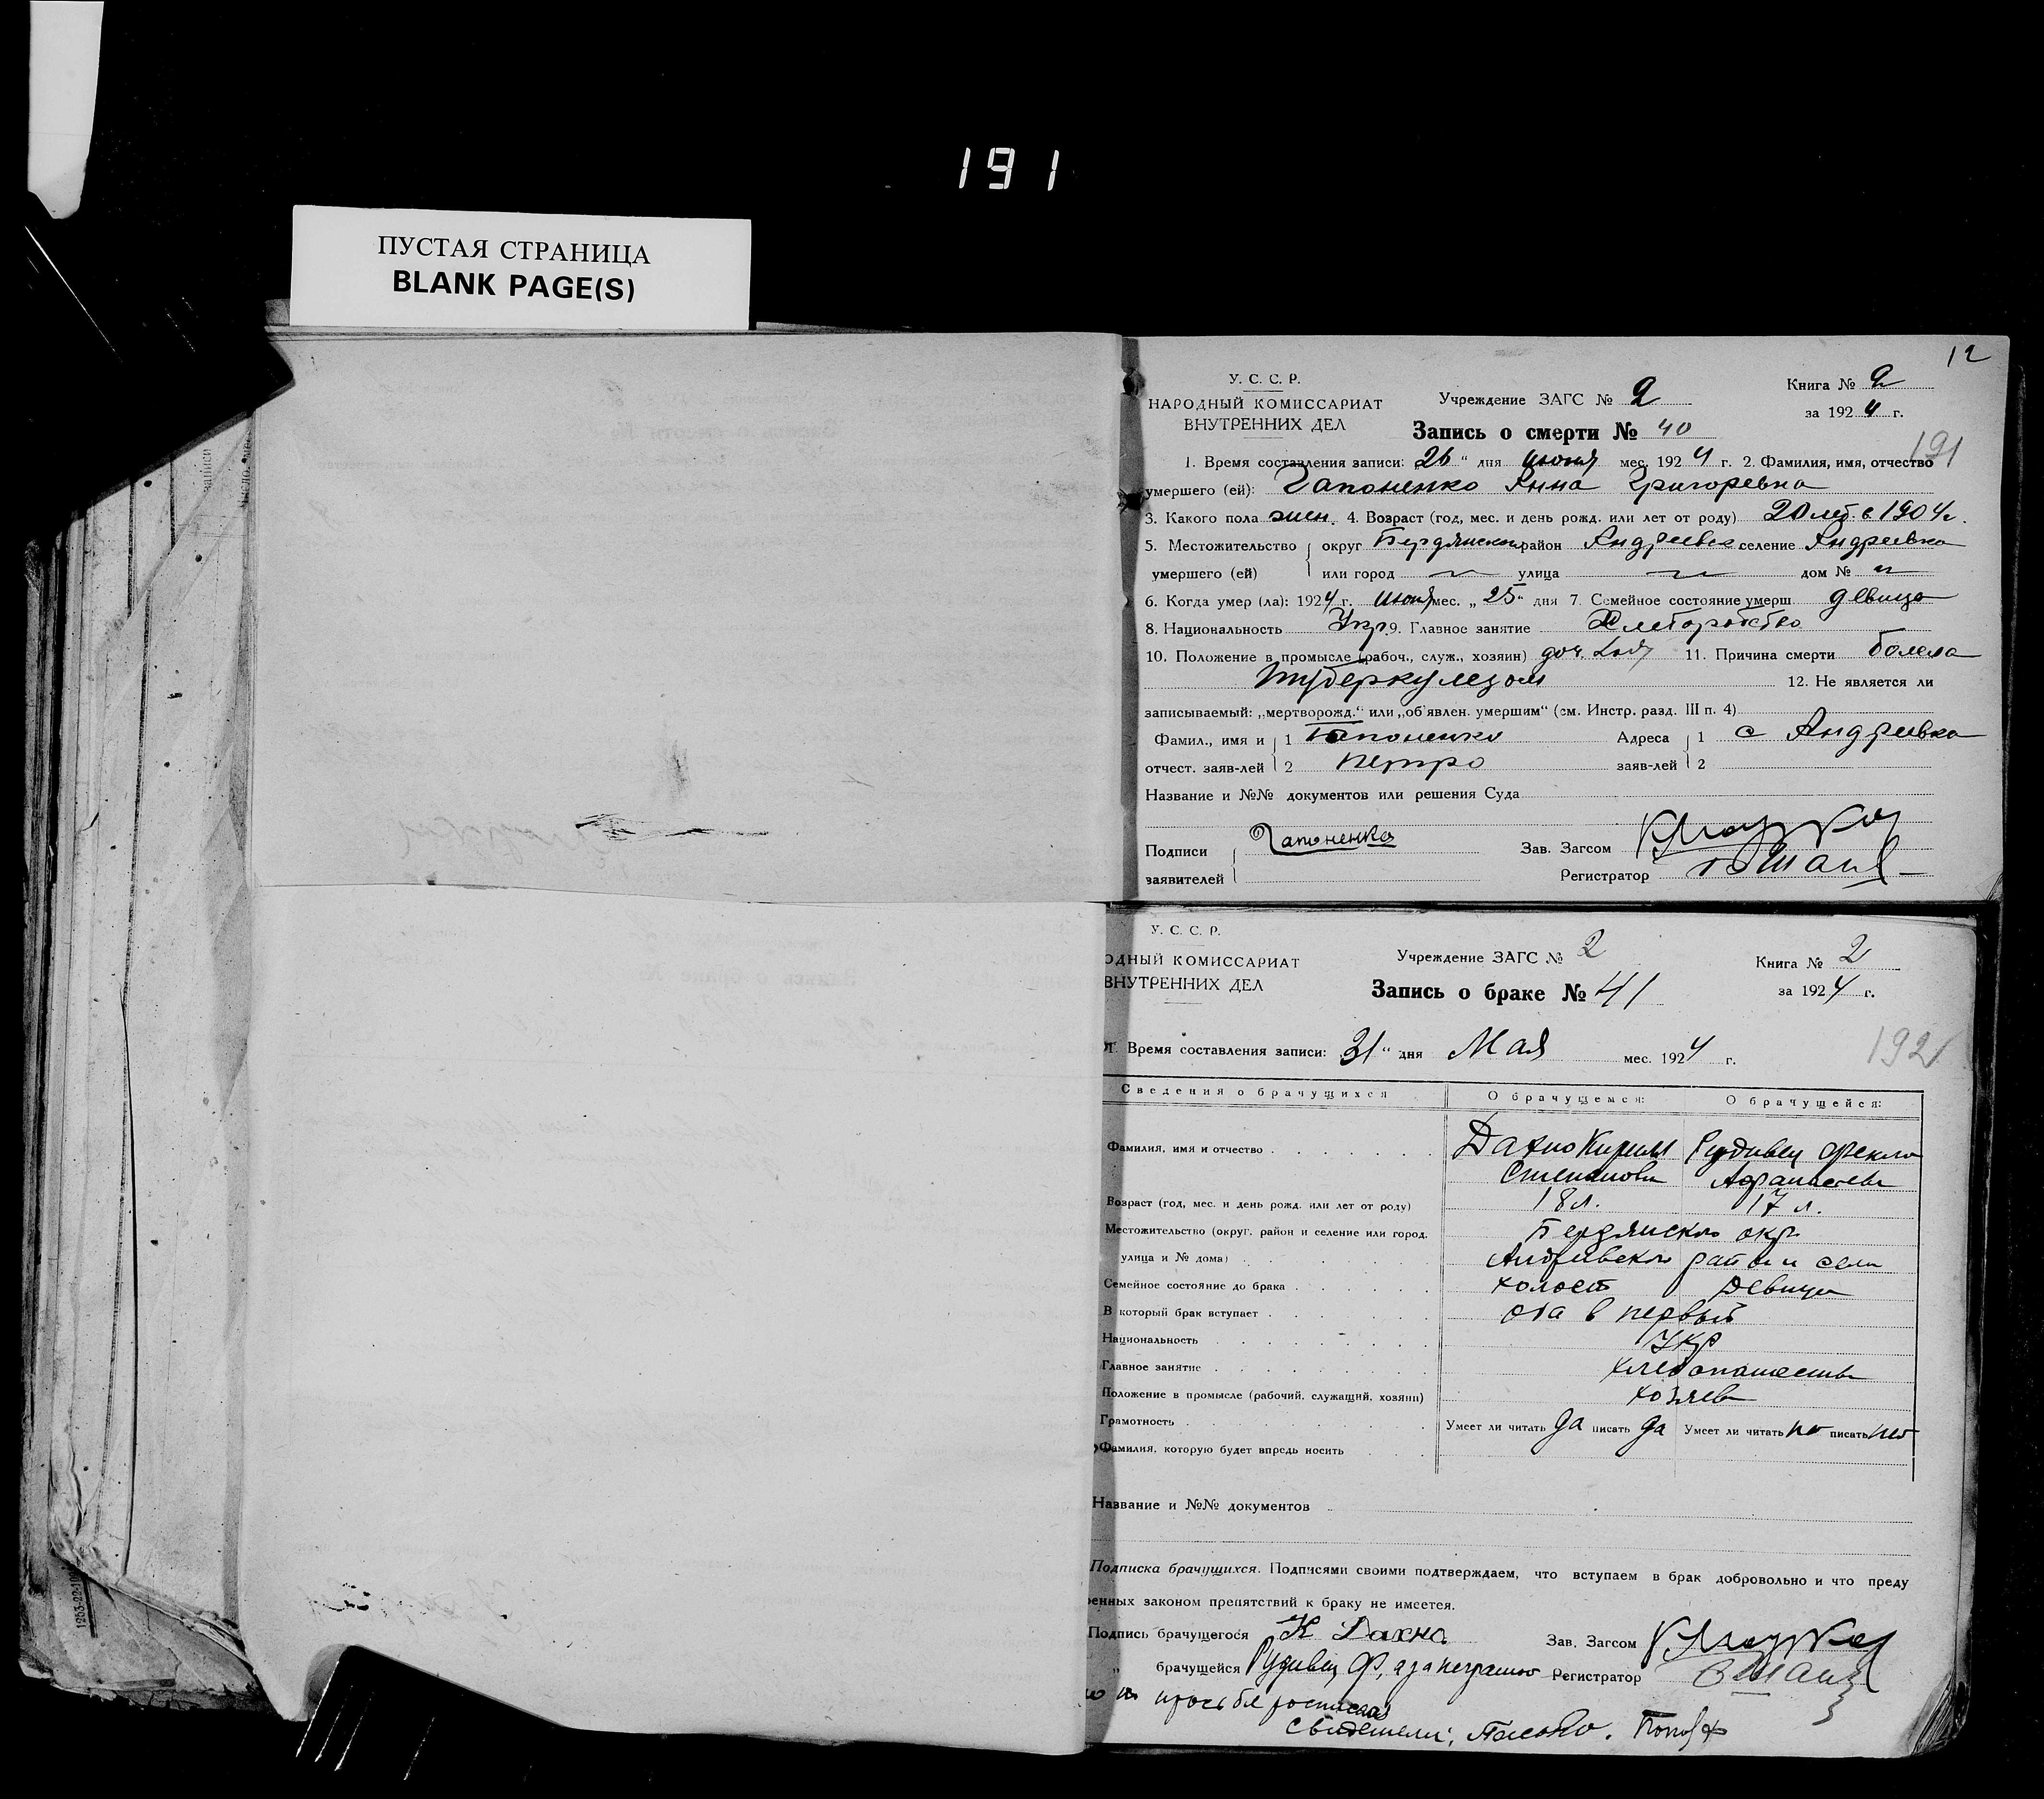 191
ПУСТАЯ СТРАНИЦА
BLANK PAGE(S)
12
У. С. С. Р.
НАРОДНЫЙ КОМИССАРИАТ
ВНУТРЕННИХ ДЕЛ
Учреждение ЗАГС № 2
Книга № 2
за 1924 г.
Запись о смерти № 40
191
1. Время составления записи: 26 " дня июня мес. 1924 г. 2. Фамилия, имя, отчество
умершего (ей): Гапоненко Анна Григоревна
3. Какого пола жен. 4. Возраст (год, мес. и день рожд. или лет от роду) 20 лет. с 1904 г.
5. Местожительство округ Бердянский район Андреевск селение Андреевка
умершего (ей) или город — улица — дом № "
6. Когда умер (ла): 1924 г. июня мес. „ 25 " дня 7. Семейное состояние умерш. девица
8. Национальность Укр. 9. Главное занятие Хлеборобство
10. Положение в промысле (рабоч., служ., хозяин) доч. 11. Причина смерти болела
туберкулезом 12. Не является ли
записываемый: „мертворожд." или „об'явлен. умершим" (см. Инстр. разд. III п. 4)
Фамил., имя и 1 Гапоненко Адреса 1 с Андреевка
отчест. заяв-лей 2 Петро заяв-лей 2
Название и №№ документов или решения Суда
Подписи Гапоненко Зав. Загсом
заявителей Регистратор
У. С. С. Р.
ОДНЫЙ КОМИССАРИАТ
ВНУТРЕННИХ ДЕЛ
Учреждение ЗАГС № 2
Книга № 2
за 1924 г.
Запись о браке № 41
192
1. Время составления записи: 31 " дня Мая мес. 1924 г.
Сведения о брачущихся О брачущемся: О брачущейся:
Фамилия, имя и отчество Дахно Кирилл Рудивец Фекла
Степанови Афанасиев
Возраст (год, мес. и день рожд. или лет от роду) 18 л. 17 л.
Местожительство (округ, район и селение или город, Бердянского окр.
улица и № дома) Андреевского района села
Семейное состояние до брака холост Девица
В который брак вступает оба в первый
Национальность Укр
Главное занятие хлебопашество
Положение в промысле (рабочий, служащий, хозяин) хозяев
Грамотность Умеет ли читать да писать да Умеет ли читать не писать нет
Фамилия, которую будет впредь носить
Название и №№ документов
Подписка брачущихся. Подписями своими подтверждаем, что вступаем в брак добровольно и что преду
енных законом препятствий к браку не имеется.
Подпись брачущегося К Дахно Зав. Загсом
„ брачущейся Рудивец Ф, а за неграмот Регистратор
по просьбе росписался
Свидетели: